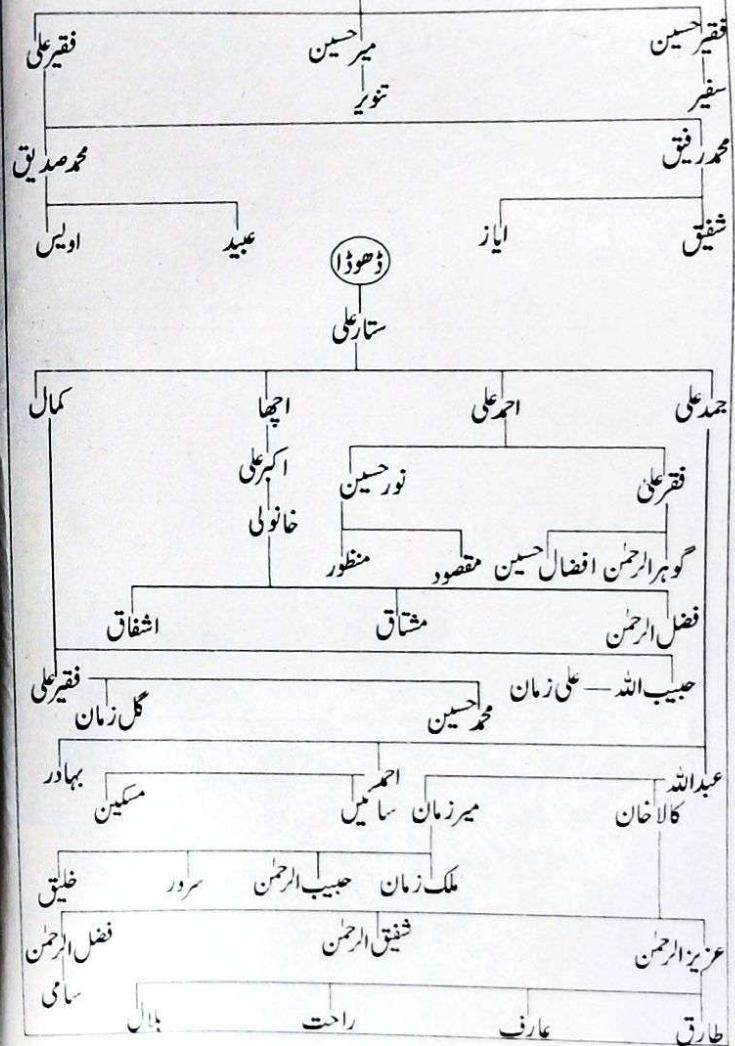 فقیر حسین میر حسین فقیر علی
سفیر تنویر
محمد رفیق محمد صدیق
شفیق ایاز عبید اویس
ڈھوڈا
ستار علی
جمد علی احمد علی اچھا کمال
فقر علی نور حسین اکبر علی
خانولی
گوہر الرحمٰن افضال حسین مقصود منظور
فضل الرحمٰن مشتاق اشفاق
حبیب اللہ — علی زمان فقیر علی
محمد حسین گل زمان
عبداللہ احمد بہادر
کالا خان میر زمان سائیں مسکین
ملک زمان حبیب الرحمٰن سرور خلیق
عزیز الرحمٰن شفیق الرحمٰن فضل الرحمٰن
سامی
طارق عارف راحت بلال